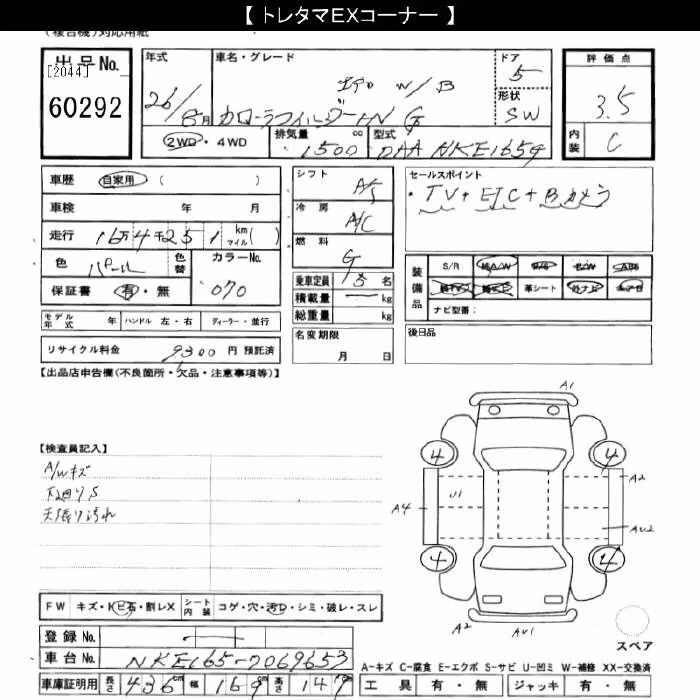 【 トレタマEXコーナー 】
(複合機)対応用紙
出品No.
[2044]
60292
年式 26/8月
車名・グレード
カローラフィールダー HV G
ドア 5
形状 SW
評価点 3.5
内装 C
2WD・4WD
排気量 1500 cc
型式 DAA NKE165G
車歴 自家用 ( )
車検 年 月
走行 16万4千251 km マイル( )
色 パール 色替 カラーNo. 070
保証書 有・無
モデル年式 年 ハンドル 左・右 ディーラー・並行
リサイクル料金 9300 円 預託済
シフト A/S
冷房 A/C
燃料 G
乗車定員 5 名
積載量 ー kg
総重量 kg
名変期限 月 日
セールスポイント
・TV+ETC+Bカメラ
装備品 S/R A/W P/S P/W ABS
革シート
ナビ型番:
後日品
【出品店申告欄(不良箇所・欠品・注意事項等)】
【検査員記入】
A/Wキズ
下廻りS
天張り汚れ
A1
4 4
A2
U1
A4
AU2
4 4
A2 AU1
スペア
FW キズ・トビ石・割レX シート内装 コゲ・穴・汚D・シミ・破レ・スレ
登録 No. ー
車台 No. NKE165-7069653
A−キズ C−腐食 E−エクボ S−サビ U−凹ミ W−補修 XX−交換済
車庫証明用 長さ 436cm 幅 169cm 高さ 147
工具 有・無 ジャッキ 有・無